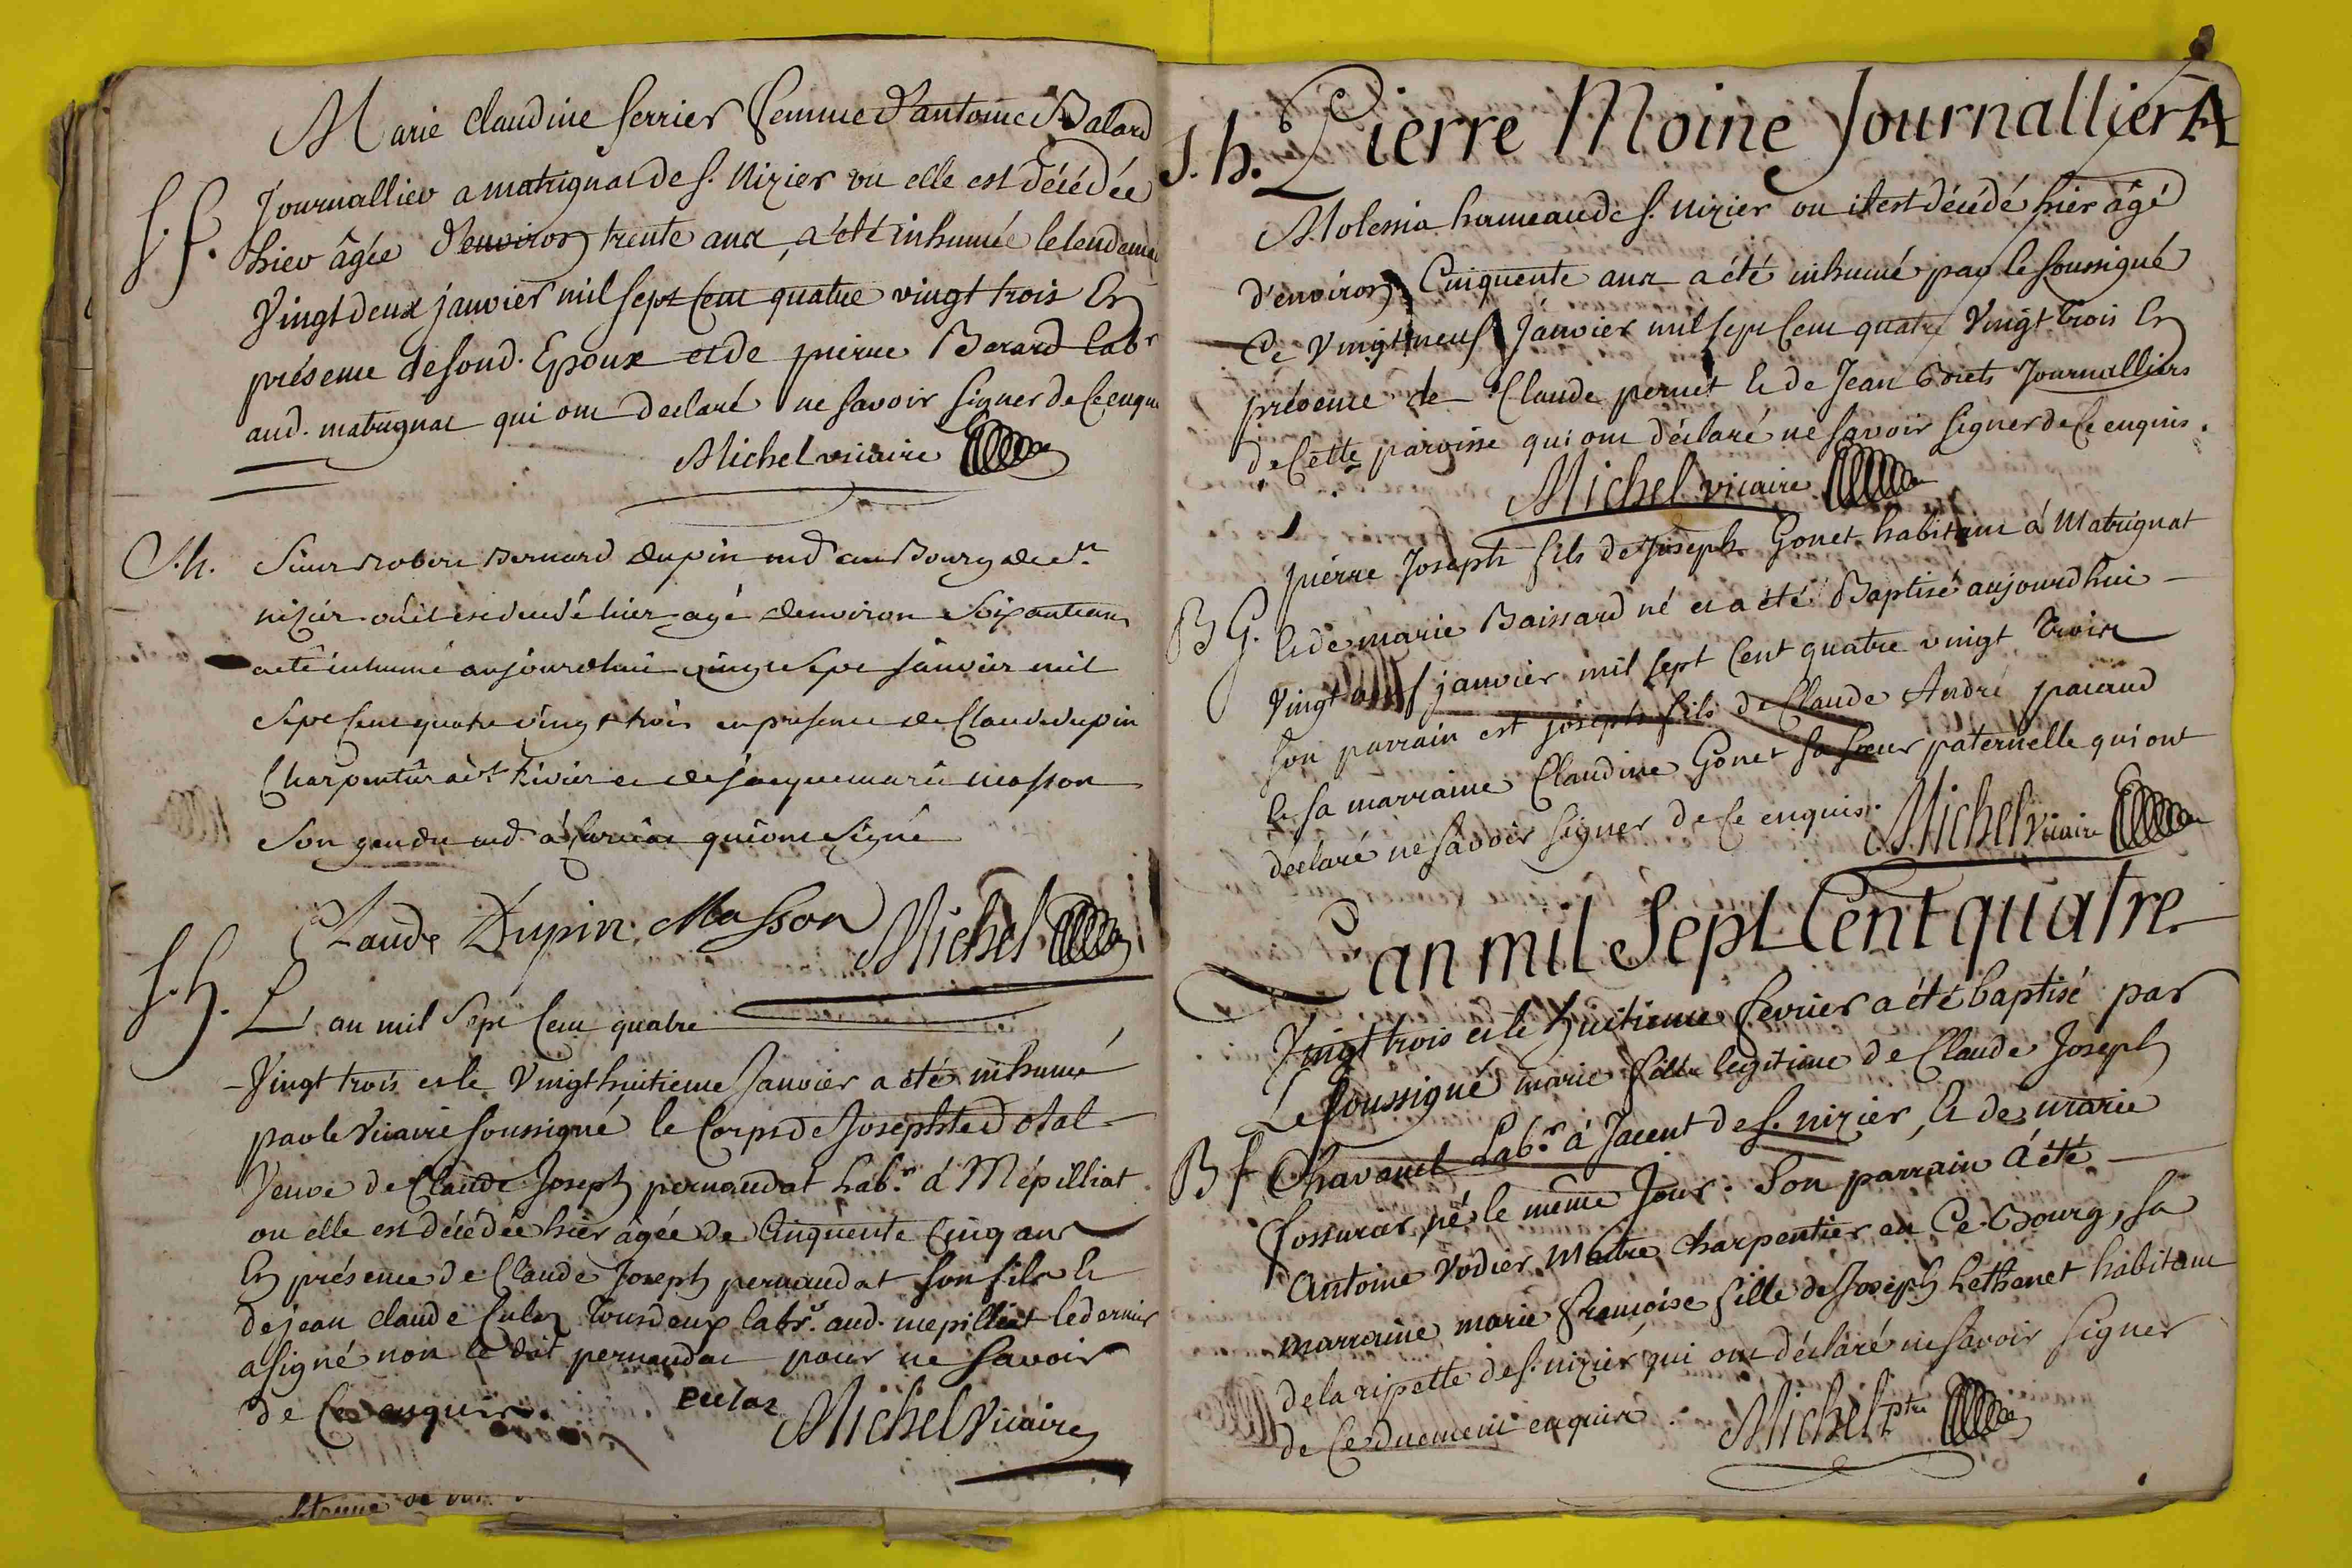 Marie Claudine ferrier femme d'antoine Balard
S. f. Journallier a matrignat de S. Nizier ou elle est décédée
hier âgée d'environ trente ans, a été inhumée le lendemain
Vingt deux janvier mil sept cent quatre vingt trois En
présence de sond. Epoux et de pierre Berard labr
aud. matrignat qui ont declaré ne savoir signer de ce enquis
Michel vicaire
S. h. Sieur Robert Bernard Dupin md au Bourg de St
nizier où il est decedé hier agé denviron soixante ans
a eté inhumé aujourdhui vingt sept janvier mil
sept cent quatre vingt trois en presence de Claude dupin
Charpentier à St trivier et de jacque marie masson
son gendre md à qui ont signé
Claude Dupin Masson Michel
S. h. L'an mil sept cent quatre
Vingt trois et le vingt huitieme Janvier a été inhumé
par le Vicaire soussigné le Corps de Josephte Dotal
Veuve de Claude Joseph pernaudat labr. à Mépilliat
ou elle est décédée hier âgée de Cinquente Cinq ans
En présence de Claude Joseph pernaudat son fils et
de jean claude Culaz tous deux labrs. aud. mepilliat le dernier
a signé non le dit pernaudat pour ne savoir
de Ce enquis.
culaz Michel Vicaire
S. h. Pierre Moine Journallier A
Molemia hameau de S. nizier ou il est décédé hier âgé
d'environ Cinquente ans a été inhumé par le soussigné
Ce Vingt neuf Janvier mil sept Cent quatre Vingt trois En
présence de Claude pernet et de Jean Journalliers
de Cette paroisse qui ont déclaré ne savoir signer de Ce enquis.
Michel vicaire
pierre Joseph fils de Joseph Gonet habitant à Matrignat
B G. et de marie Baissard né et a été Baptisé aujourdhui
Vingt neuf janvier mil sept Cent quatre vingt trois
son parrain est joseph fils de Claude André
et sa marraine Claudine Gonet sa soeur paternelle qui ont
declaré ne savoir signer de Ce enquis. Michel Vicaire
L'an mil Sept Cent quatre
Vingt trois et le huitieme fevrier a été baptisé par
Le soussigné marie fille legitime de Claude Joseph
B f Chavanel Labr. à Jacent de S. nizier, et de marie
né le même Jour. Son parrain a été
Antoine Vodier Maitre Charpentier en Ce Bourg, sa
marraine marie françoise fille de Joseph Lethenet habitant
de la ripette de S. nizier qui ont déclaré ne savoir signer
de Ce duement enquis. Michel ptre